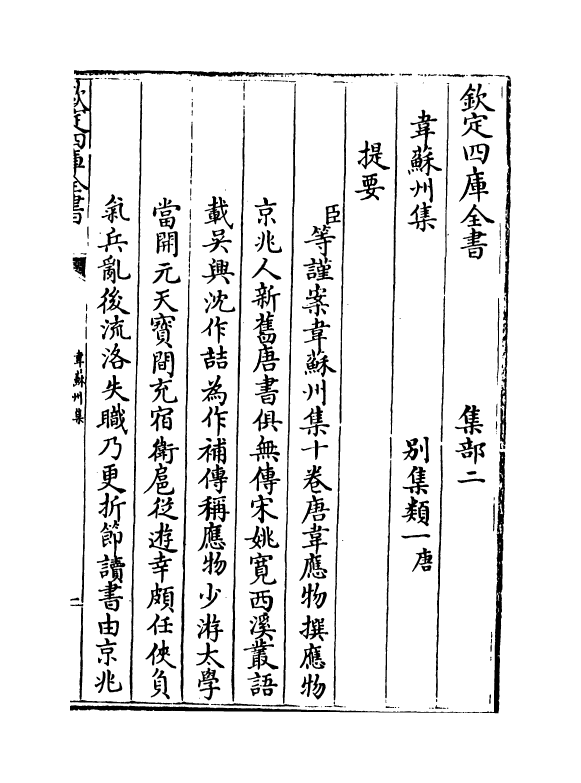 欽定四庫全書 集部二
韋蘇州集 別集類一唐
提要
臣等謹案韋蘇州集十卷唐韋應物撰應物
京兆人新舊唐書俱無傳宋姚寬西溪叢語
載吳興沈作喆為作補傳稱應物少游太學
當開元天寶間充宿衛扈從遊幸頗任俠負
氣兵亂後流洛失職乃更折節讀書由京兆
欽定四庫全書 韋蘇州集